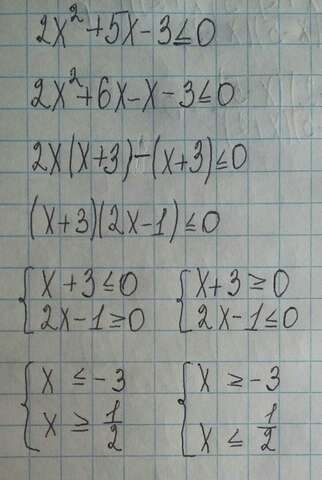 2x² + 5x - 3 ≤ 0
2x² + 6x - x - 3 ≤ 0
2x(x+3) - (x+3) ≤ 0
(x+3)(2x-1) ≤ 0
{ x + 3 ≤ 0
2x - 1 ≥ 0
{ x + 3 ≥ 0
2x - 1 ≤ 0
{ x ≤ -3
x ≥ 1/2
{ x ≥ -3
x ≤ 1/2